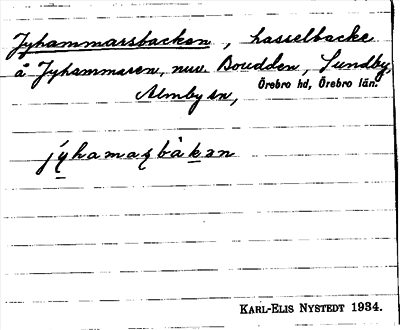 Jyhammarsbacken, hasselbacke
å Jyhammaren, nuv. Boudden, Sundby,
Almby sn, Örebro hd, Örebro län.
jyhamaʂbàkən
KARL-ELIS NYSTEDT 1934.